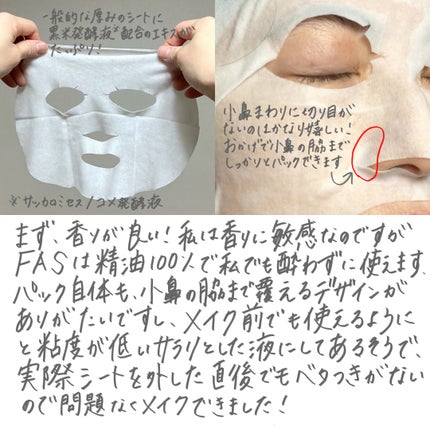 一般的な厚みのシートに
黒米発酵液※配合のエキスが
たっぷり！
※サッカロミセス/コメ発酵液
小鼻まわりに切り目が
ないのはかなり嬉しい！
おかげで小鼻の脇まで
しっかりとパックできます
まず、香りが良い！私は香りに敏感なのですが
FASは精油100%で私でも酔わずに使えます。
パック自体も、小鼻の脇まで覆えるデザインが
ありがたいですし、メイク前でも使えるように
と粘度が低いサラリとした液にしてあるそうで、
実際シートを外した直後でもベタつきがない
ので問題なくメイクできました！